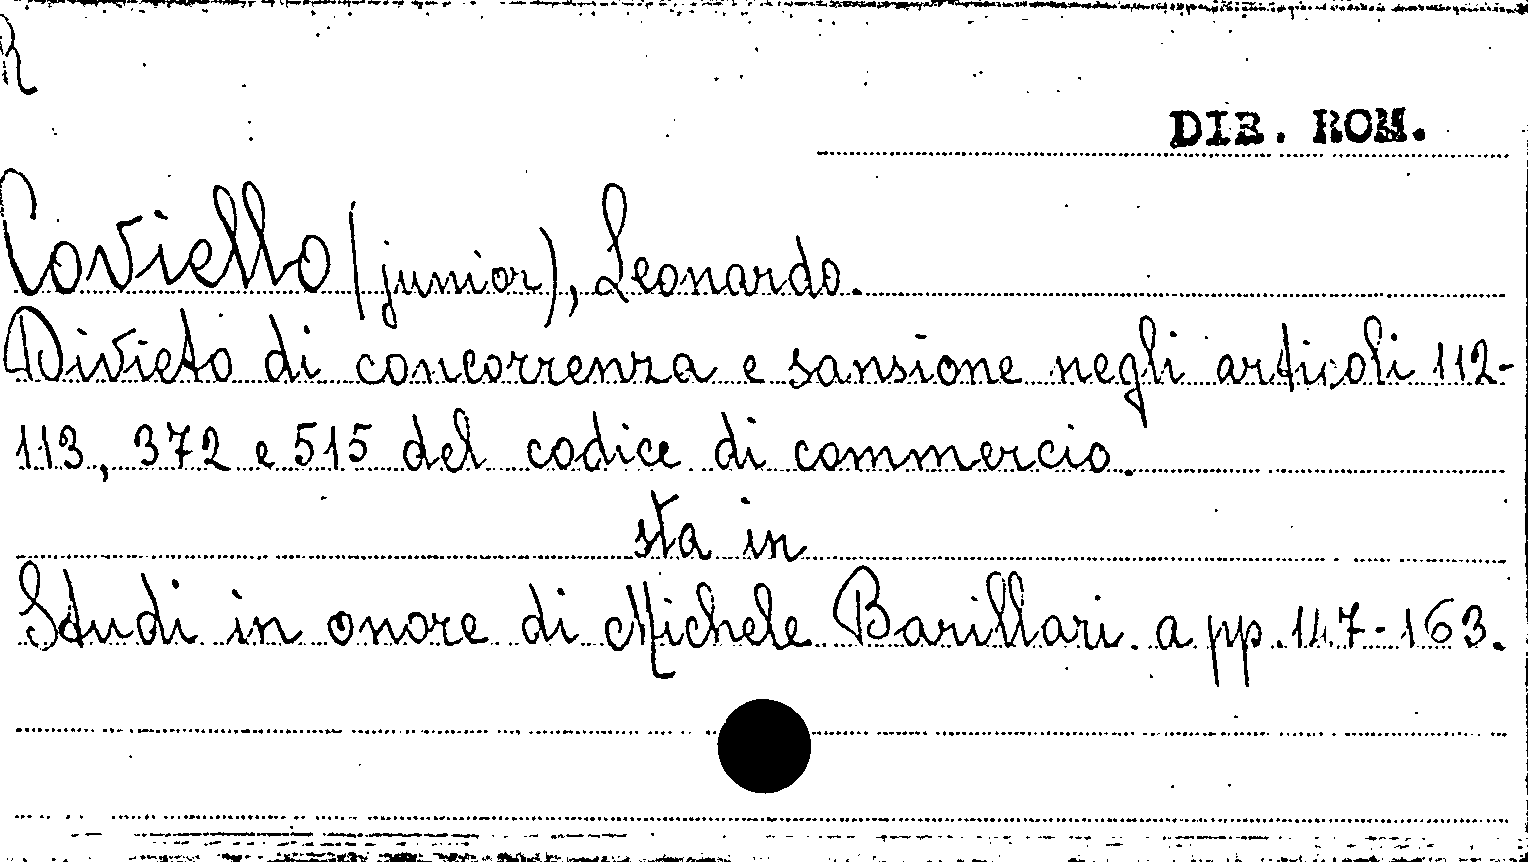 R
DIR. ROM.
Coviello (junior), Leonardo.
Divieto di concorrenza e sansione negli articoli 112-
113, 372 e 515 del codice di commercio.
sta in
Studi in onore di Michele Barillari. a pp. 147-163.